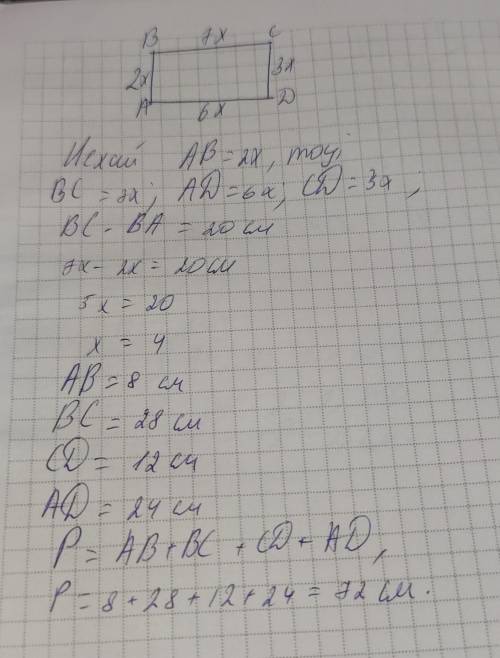 B 7x C
2x 3x
A 6x D
Нехай AB = 2x, тоді
BC = 7x; AD = 6x; CD = 3x;
BC - BA = 20 см
7x - 2x = 20 см
5x = 20
x = 4
AB = 8 см
BC = 28 см
CD = 12 см
AD = 24 см
P = AB + BC + CD + AD,
P = 8 + 28 + 12 + 24 = 72 см.